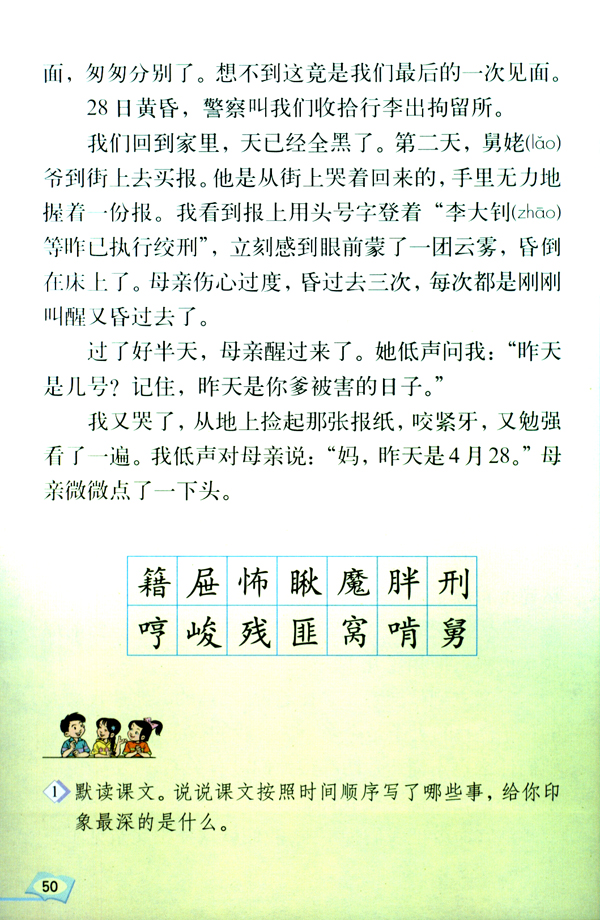 面，匆匆分别了。想不到这竟是我们最后的一次见面。
28日黄昏，警察叫我们收拾行李出拘留所。
我们回到家里，天已经全黑了。第二天，舅姥(lǎo)
爷到街上去买报。他是从街上哭着回来的，手里无力地
握着一份报。我看到报上用头号字登着“李大钊(zhāo)
等昨已执行绞刑”，立刻感到眼前蒙了一团云雾，昏倒
在床上了。母亲伤心过度，昏过去三次，每次都是刚刚
叫醒又昏过去了。
过了好半天，母亲醒过来了。她低声问我：“昨天
是几号？记住，昨天是你爹被害的日子。”
我又哭了，从地上捡起那张报纸，咬紧牙，又勉强
看了一遍。我低声对母亲说：“妈，昨天是4月28。”母
亲微微点了一下头。
籍 屉 怖 瞅 魔 胖 刑
哼 峻 残 匪 窝 啃 舅
1 默读课文。说说课文按照时间顺序写了哪些事，给你印
象最深的是什么。
50